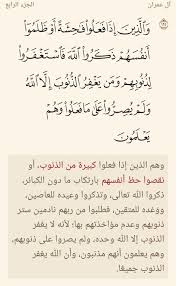 آل عمران
الجزء الرابع
وَٱلَّذِينَ إِذَا فَعَلُوا۟ فَـٰحِشَةً أَوْ ظَلَمُوٓا۟
أَنفُسَهُمْ ذَكَرُوا۟ ٱللَّهَ فَٱسْتَغْفَرُوا۟
لِذُنُوبِهِمْ وَمَن يَغْفِرُ ٱلذُّنُوبَ إِلَّا ٱللَّهُ
وَلَمْ يُصِرُّوا۟ عَلَىٰ مَا فَعَلُوا۟ وَهُمْ
يَعْلَمُونَ
وهم الذين إذا فعلوا كبيرة من الذنوب، أو
نقصوا حظ أنفسهم بارتكاب ما دون الكبائر،
ذكروا الله تعالى، وتذكروا وعيده للعاصين،
ووعده للمتقين، فطلبوا من ربهم نادمين ستر
ذنوبهم وعدم مؤاخذتهم بها؛ لأنه لا يغفر
الذنوب إلا الله وحده، ولم يصروا على ذنوبهم،
وهم يعلمون أنهم مذنبون، وأن الله يغفر
الذنوب جميعًا.